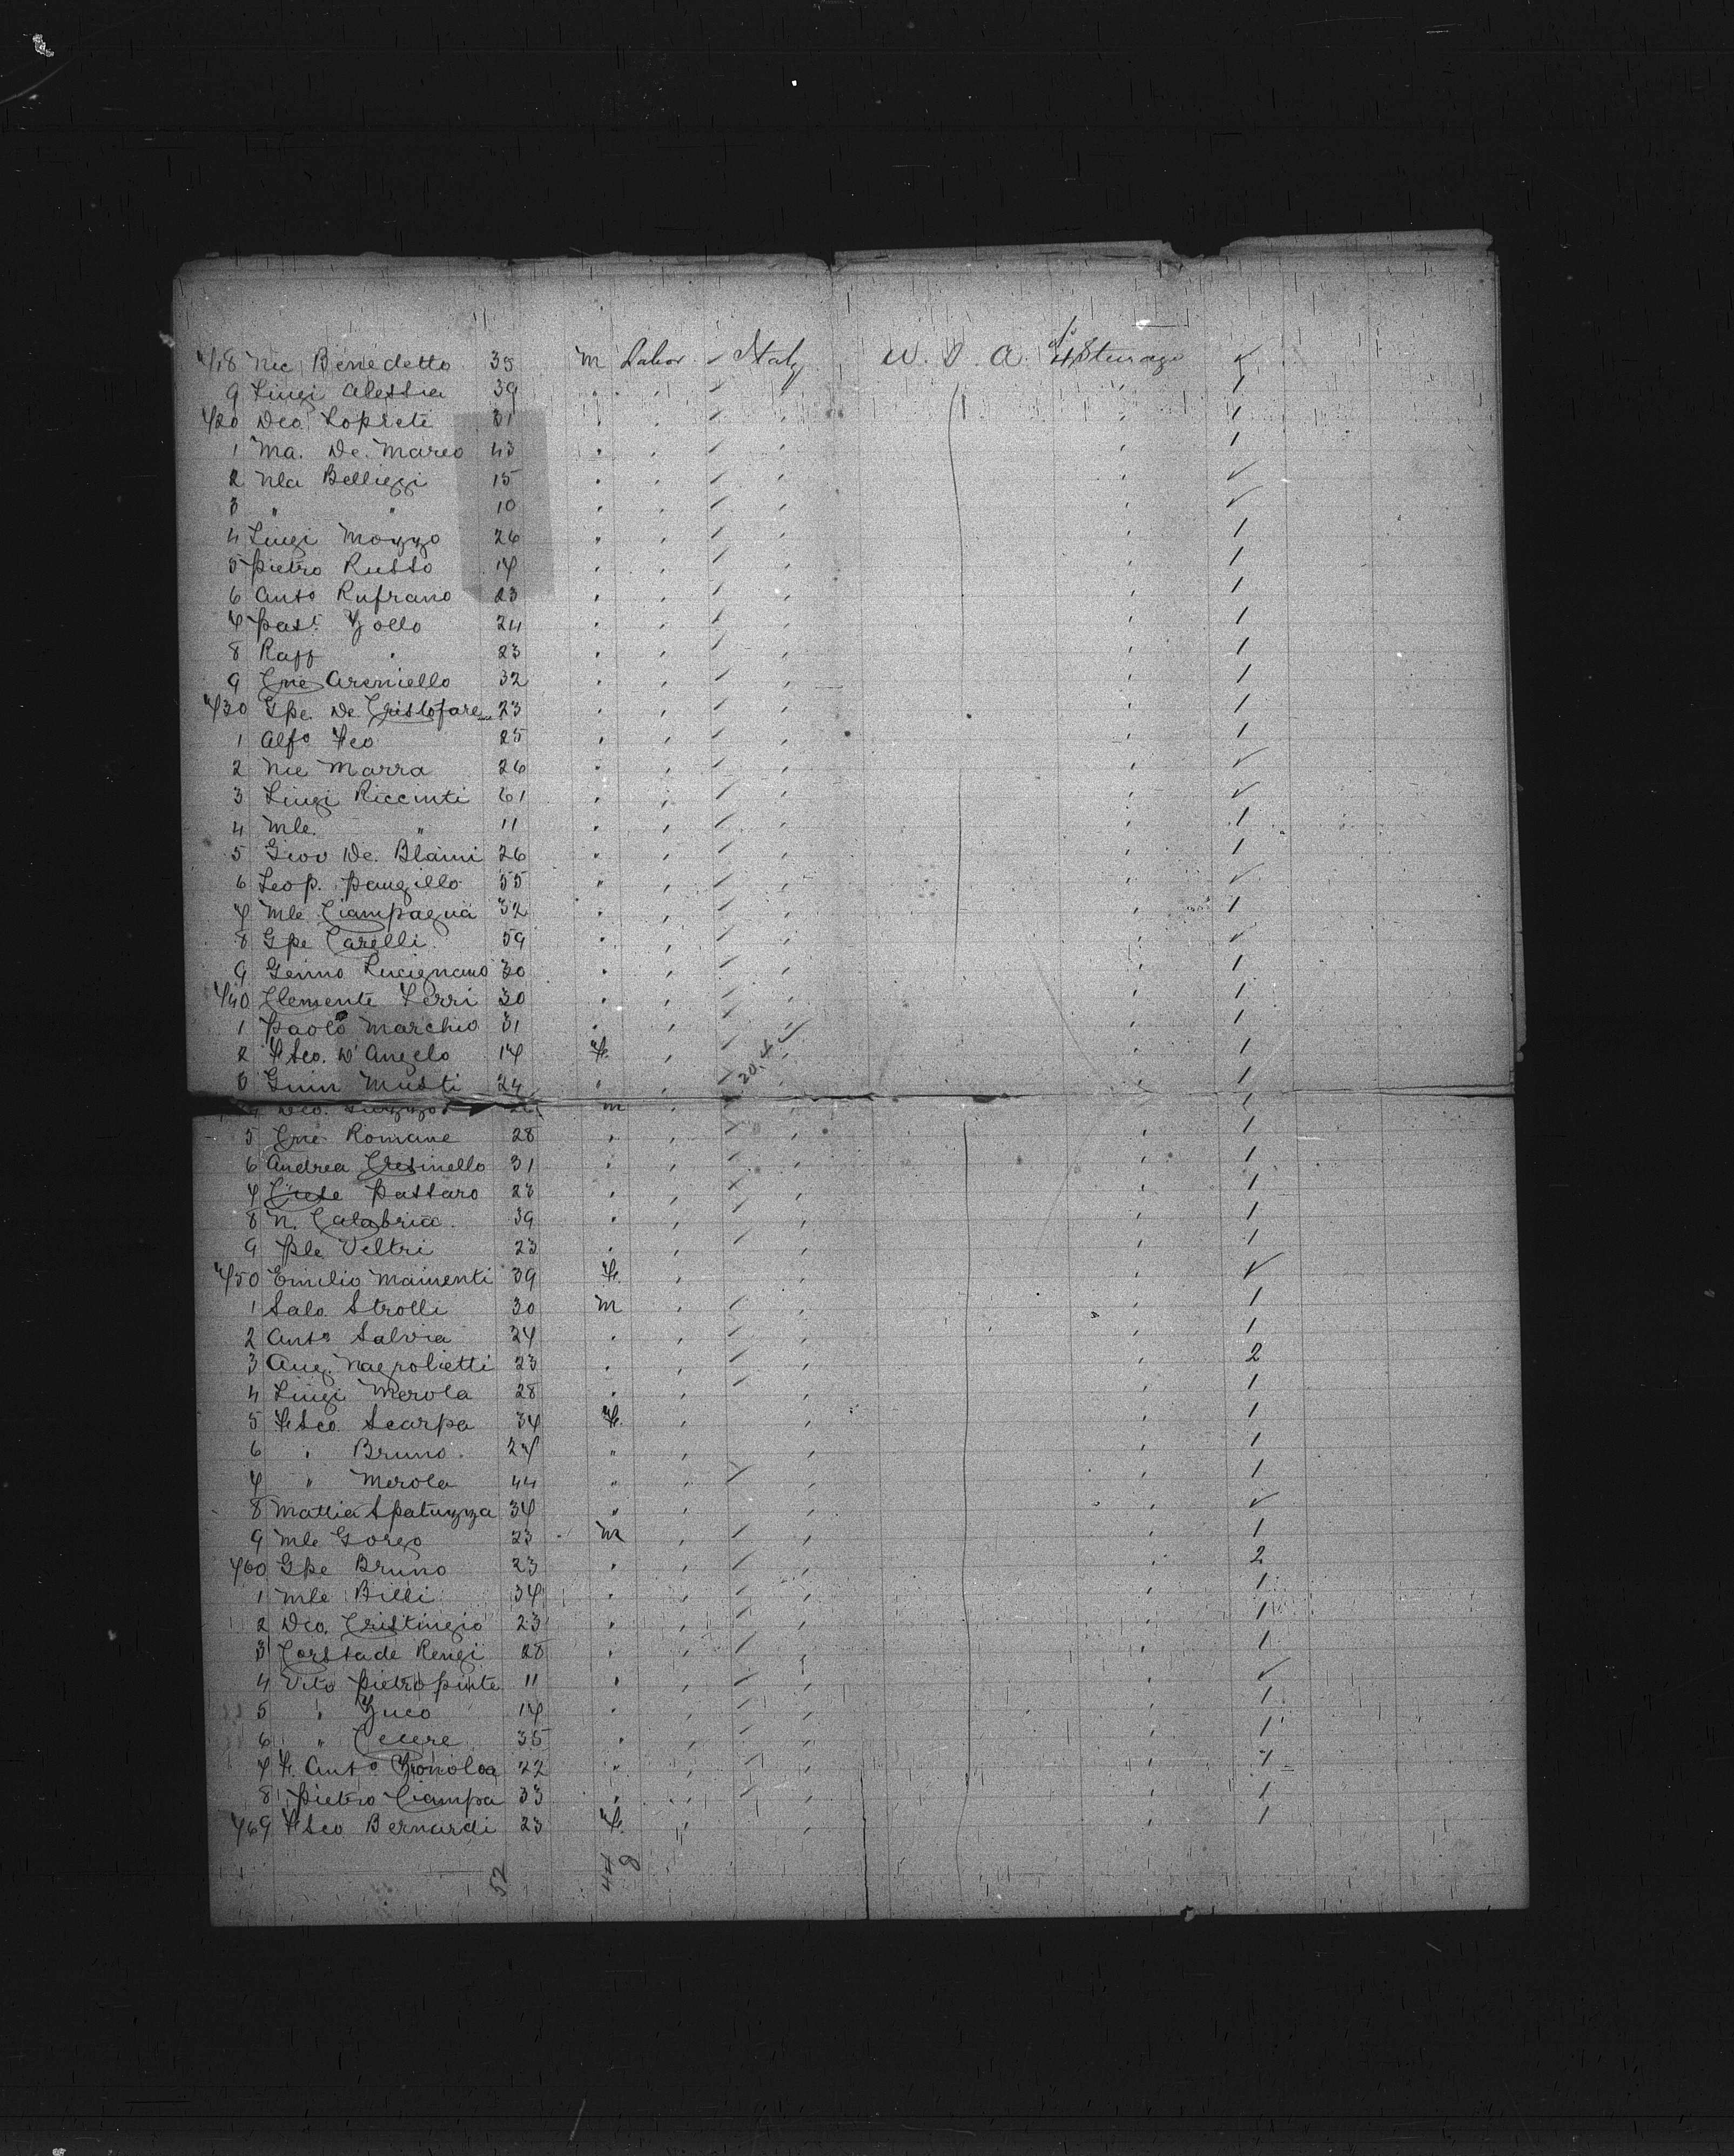 718 Nic Benedetto 35 M Labor / Italy U. S. A. 4 Steerage ✓
9 Luigi Alessia 39 " " / " " 1
720 Dco Loprete 31 " " / " " 1
1 Ma. De. Marco 43 " " / " " 1
2 Nla Bellizzi 15 " " / " " ✓
3 " " 10 " " / " " ✓
4 Luigi Mozzo 26 " " / " " 1
5 Pietro Russo 17 " " / " " 1
6 Anto Rufrano 23 " " / " " 1
7 Pasl. Zollo 24 " " / " " 1
8 Raff " 23 " " / " " 1
9 Cne Areniello 32 " " / " " 1
730 Gpe. De Cristofare 23 " " / " " 1
1 Alfo Feo 25 " " / " " 1
2 Nic Marra 26 " " / " " ✓
3 Luigi Riccinti 61 " " / " " ✓
4 Mle. " 11 " " / " " 1
5 Giov De. Blaini 26 " " / " " 1
6 Leop. Pangillo 55 " " / " " ✓
7 Mle Ciampagna 32 " " / " " 1
8 Gpe Carelli 59 " " / " " ✓
9 Genno Lucignano 30 " " / " " 1
740 Clemente Ferri 30 " " / " " 1
1 Paolo Marchio 31 " " / " " 1
2 Fsco. D'Angelo 17 F. " / " " 1
3 Gnin Musti 24 " " / " " 1
4 Dco. M " / " "
5 Cne Romane 28 " " / " " 1
6 Andrea Cresinello 31 " " / " " 1
7 Passaro 23 " " / " " 1
8 N. Calabria 39 " " / " " 1
9 Ple Veltri 23 " " / " " 1
750 Emilio Mainenti 39 F. " " " ✓
1 Salo Strolli 30 M " / " " 1
2 Anto Salvia 37 " " / " " 1
3 Aug. Nagrolietti 23 " " / " " 2
4 Luigi Merola 28 " " / " " 1
5 Fsco Scarpa 37 F. " " " 1
6 " Bruno 27 " " " " 1
7 " Merola 44 " " / " " 1
8 Mattia Spatuzza 37 " " " " ✓
9 Mle Gorgo 23 M " / " " 1
760 Gpe Bruno 23 " " / " " 2
1 Mle Billi 37 " " / " " 1
2 Dco. Cristingio 23 " " / " " 1
3 Rengi 28 " " / " " 1
4 Vito Pietropinte 11 " " / " " ✓
5 " Zuco 17 " " / " " 1
6 " Cecere 35 " " / " " 1
7 F. Anto 22 " " / " " 1
8 Pietro Ciampa 33 " " / " " 1
769 Fsco Bernardi 23 F. " " " 1
52 44 8